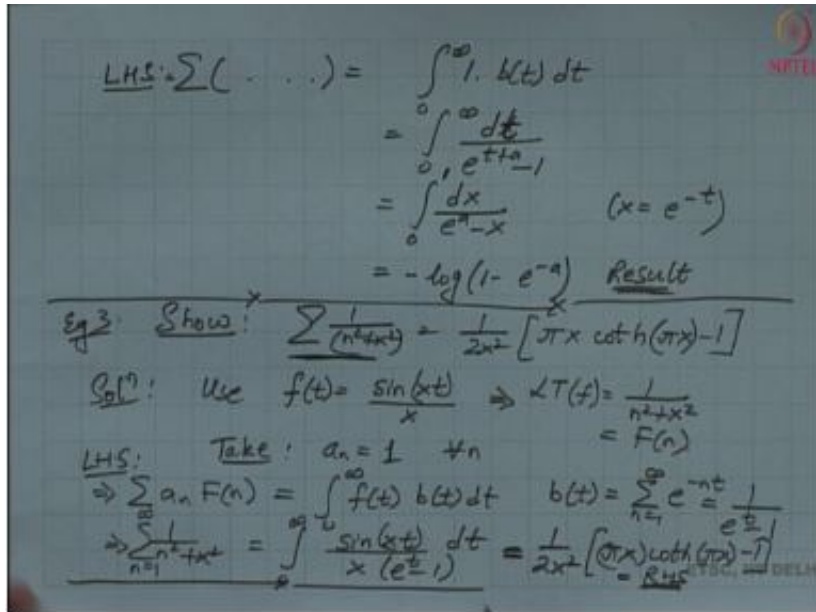 LHS: Σ( . . . ) = ∫₀^∞ 1. b(t) dt
NPTEL
= ∫₀^∞ dt / (e^{t+a} - 1)
= ∫₀^1 dx / (e^a - x) (x = e^{-t})
= - log(1 - e^{-a}) Result
Eg 3: Show: Σ 1/(n²+x²) = 1/(2x²) [πx coth(πx) - 1]
Solⁿ: Use f(t) = sin(xt)/x ⇒ LT(f) = 1/(n²+x²)
= F(n)
LHS: Take: aₙ = 1 ∀n
⇒ Σ aₙ F(n) = ∫₀^∞ f(t) b(t) dt b(t) = Σ_{n=1}^∞ e^{-nt} = 1/(e^t - 1)
⇒ Σ_{n=1}^∞ 1/(n²+x²) = ∫₀^∞ sin(xt) / (x (e^t - 1)) dt = 1/(2x²) [(πx) coth(πx) - 1]
= RHS
DELH